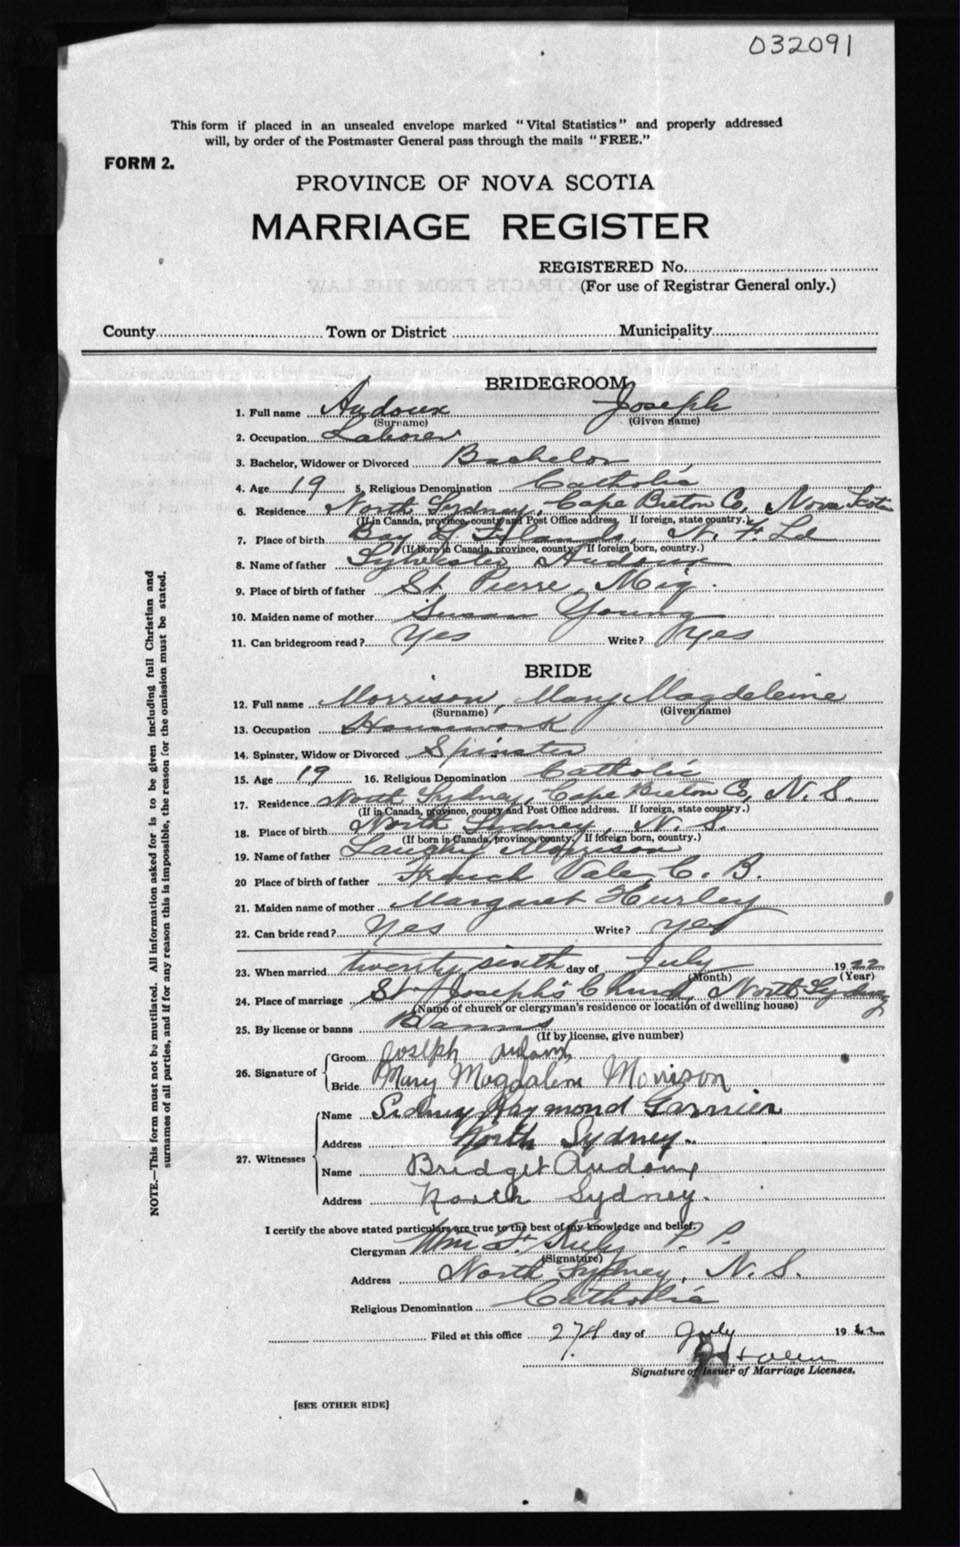 032091
This form if placed in an unsealed envelope marked "Vital Statistics" and properly addressed
will, by order of the Postmaster General pass through the mails "FREE."
FORM 2.
PROVINCE OF NOVA SCOTIA
MARRIAGE REGISTER
REGISTERED No.
(For use of Registrar General only.)
County Town or District Municipality
BRIDEGROOM
1. Full name Audoux Joseph
(Surname) (Given name)
2. Occupation Laborer
3. Bachelor, Widower or Divorced Bachelor
4. Age 19 5. Religious Denomination Catholic
6. Residence North Sydney, Cape Breton Co, Nova Scotia
(If in Canada, province, county and Post Office address. If foreign, state country.)
7. Place of birth Bay of Islands, N. F. Ld
(If born in Canada, province, county. If foreign born, country.)
8. Name of father Sylvester Audoux
9. Place of birth of father St. Pierre, Miq.
10. Maiden name of mother Susan Young
11. Can bridegroom read? Yes Write? Yes
BRIDE
12. Full name Morrison, Mary Magdeleine
(Surname) (Given name)
13. Occupation Housework
14. Spinster, Widow or Divorced Spinster
15. Age 19 16. Religious Denomination Catholic
17. Residence North Sydney, Cape Breton Co, N. S.
(If in Canada, province, county and Post Office address. If foreign, state country.)
18. Place of birth North Sydney, N. S.
(If born in Canada, province, county. If foreign born, country.)
19. Name of father Morrison
20 Place of birth of father French Vale, C. B.
21. Maiden name of mother Margaret Hurley
22. Can bride read? Yes Write? Yes
23. When married twenty sixth day of July 1922
(Month) (Year)
24. Place of marriage St Joseph's Church, North Sydney
(Name of church or clergyman's residence or location of dwelling house)
25. By license or banns Banns
(If by license, give number)
26. Signature of Groom Joseph
Bride Mary Magdalene Morrison
27. Witnesses Name Sidney Raymond Garnier
Address North Sydney.
Name Bridget Audoux
Address North Sydney.
I certify the above stated particulars are true to the best of my knowledge and belief.
Clergyman Wm F. P. P.
(Signature)
Address North Sydney, N. S.
Religious Denomination Catholic
Filed at this office 27th day of July 1922
Signature of Issuer of Marriage Licenses.
[SEE OTHER SIDE]
NOTE.—This form must not be mutilated. All information asked for is to be given including full Christian and
surnames of all parties, and if for any reason this is impossible, the reason for the omission must be stated.